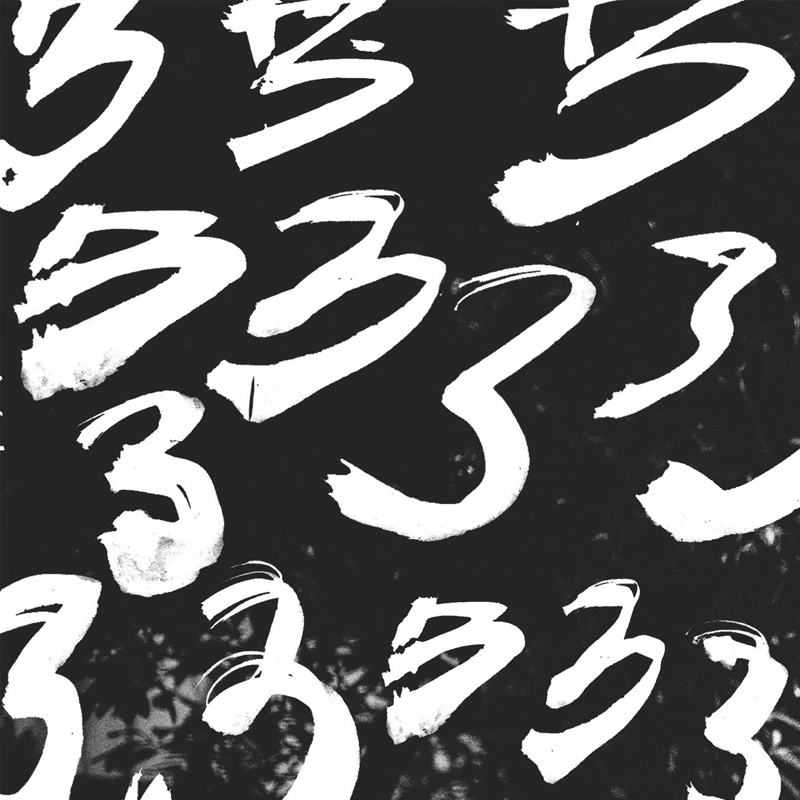 3 3 3
3 3 3 3
3
3 3 3 3 3